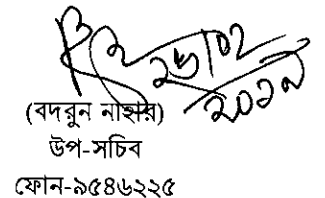 ২৬/০২
২০১৯
(বদরুন নাহার)
উপ-সচিব
ফোন-৯৫৪৬২২৫